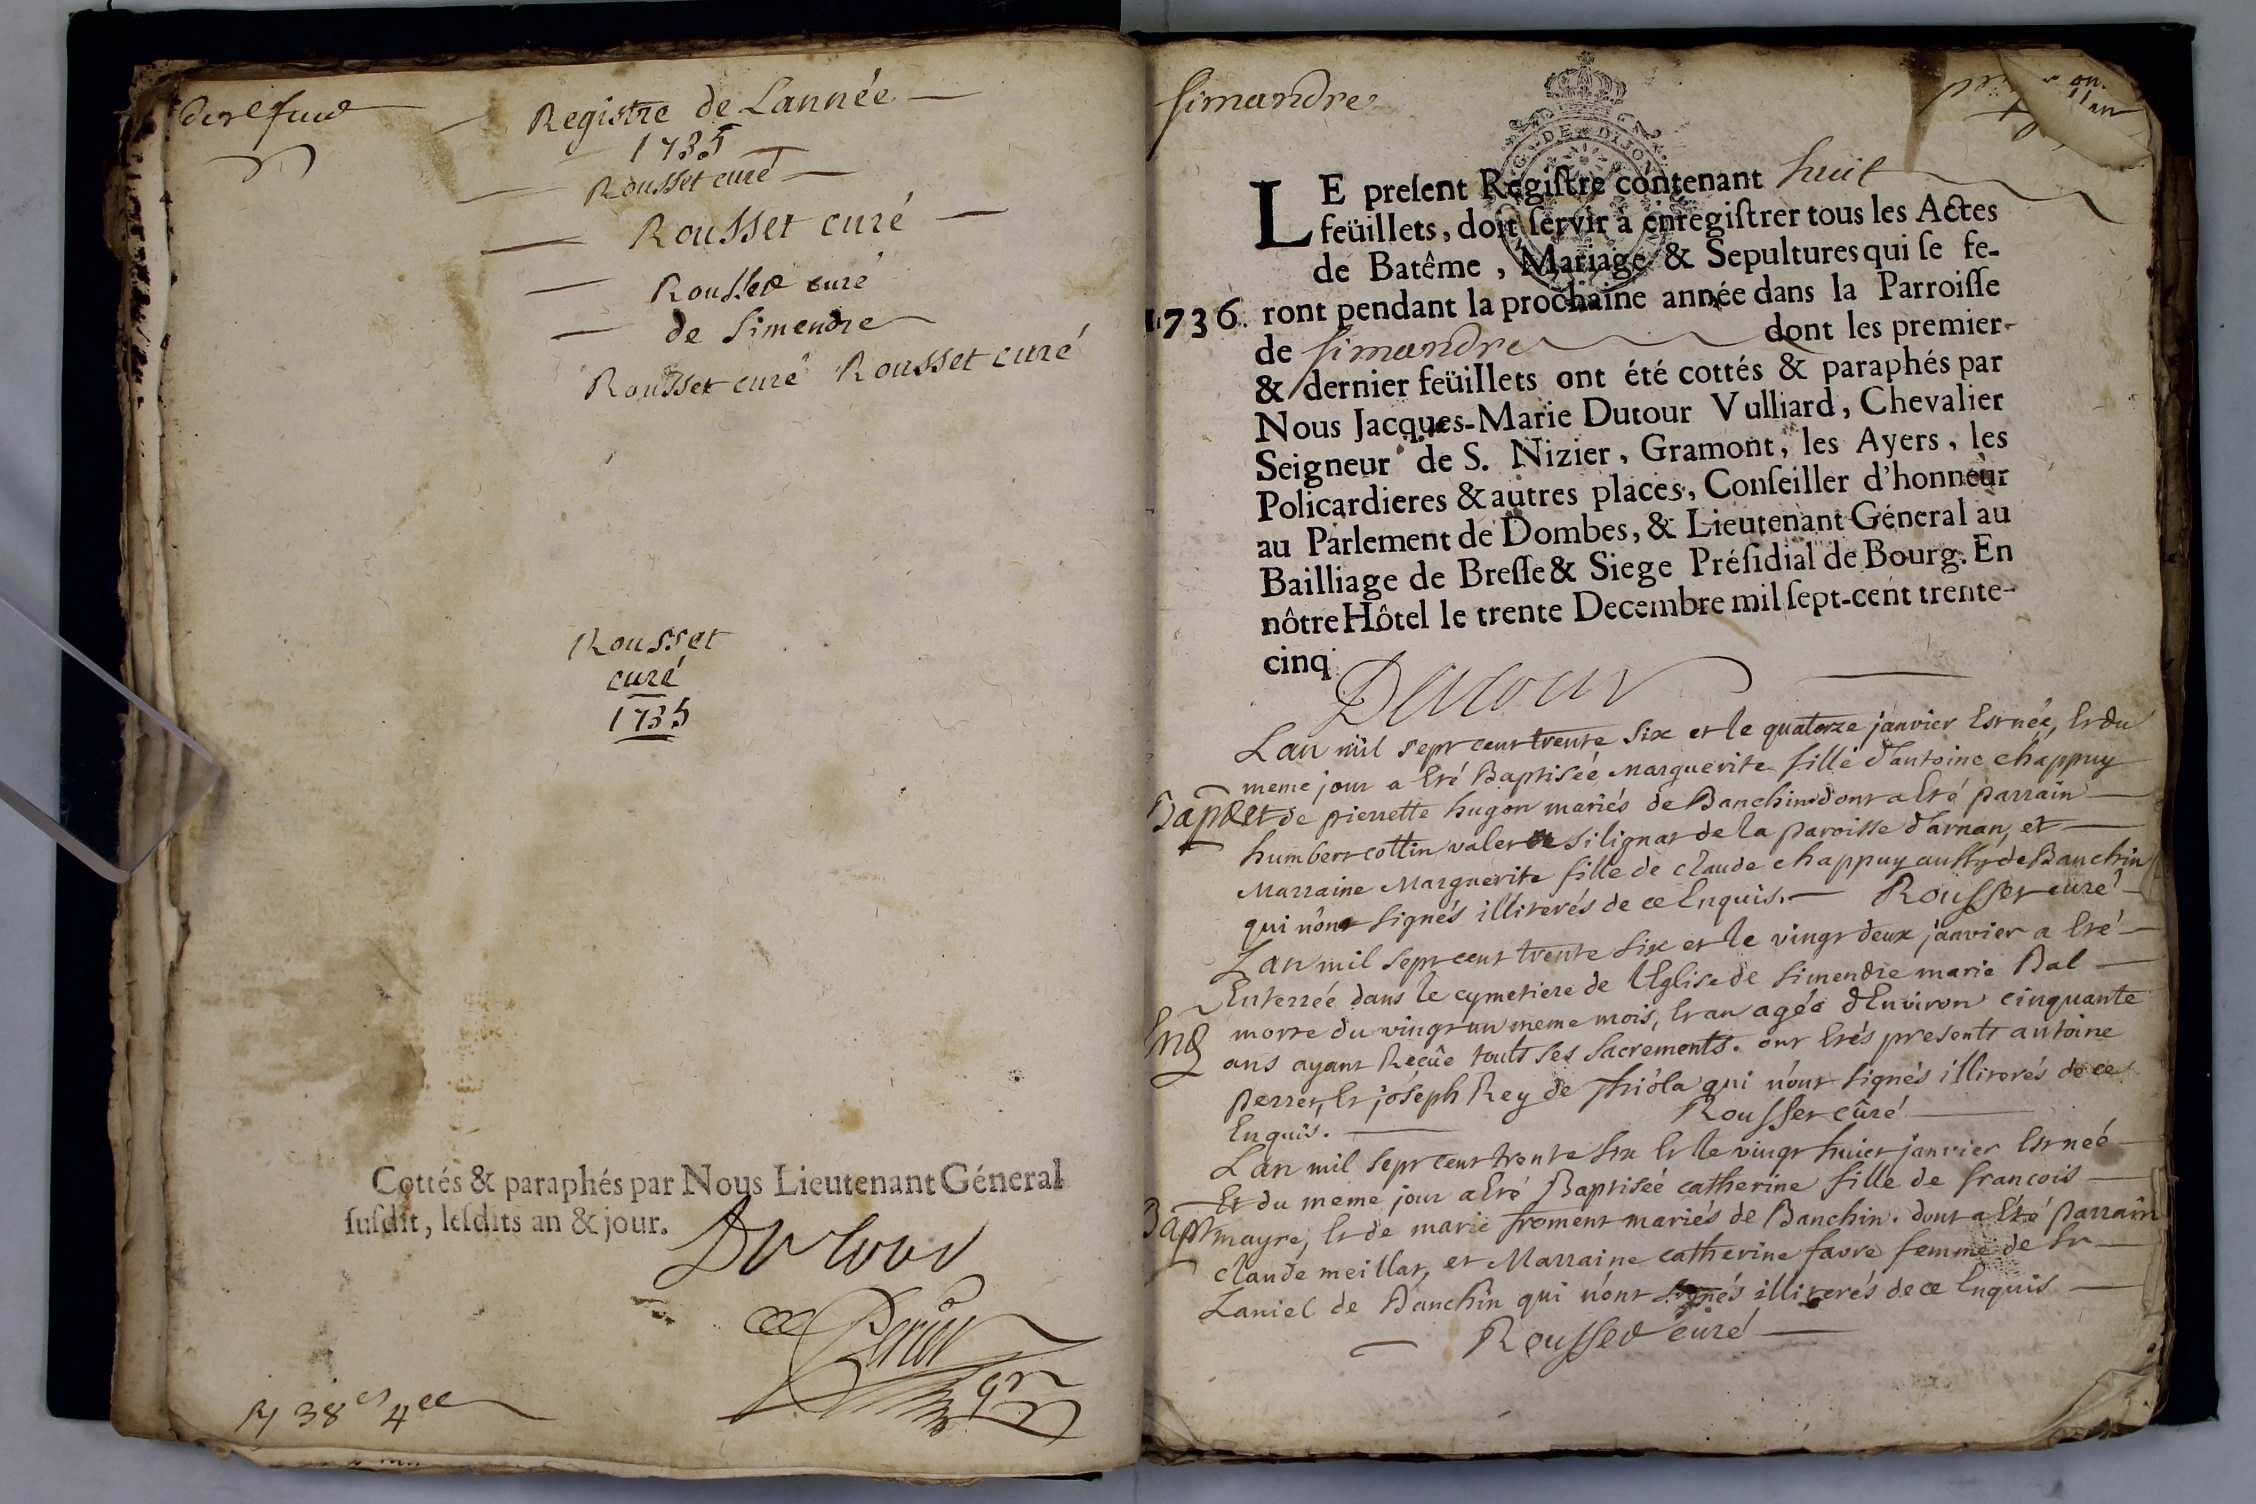 Registre de Lannée
1735
Rousset curé
Rousset curé
Rousset curé
de Simendre
Rousset curé Rousset curé
Rousset
curé
1735
Cottés & paraphés par Nous Lieutenant Géneral
susdit, lesdits an & jour.
Dutour
38 4
simandre
G. DE DIJON
LE present Registre contenant huit
feüillets, doit servir à enregistrer tous les Actes
de Batême, Mariage & Sepultures qui se fe-
1736. ront pendant la prochaine année dans la Parroisse
de simandre dont les premier
& dernier feüillets ont été cottés & paraphés par
Nous Jacques-Marie Dutour Vulliard, Chevalier
Seigneur de S. Nizier, Gramont, les Ayers, les
Policardieres & autres places, Conseiller d'honneur
au Parlement de Dombes, & Lieutenant Géneral au
Bailliage de Bresse & Siege Présidial de Bourg. En
nôtre Hôtel le trente Decembre mil sept-cent trente-
cinq
Dutour
Lan mil sept cent trente six et le quatorze janvier Est née, Et du
meme jour a Eté Baptisée Marguerite fille d'antoine chappuy
Bapt Et de pierrette hugon mariés de Banchin dont a Eté parrain
humbert cottin valet de silignat de la paroisse d'arnan, et
Marraine Marguerite fille de claude chappuy aussy de Banchin
qui n'ont signés illiterés de ce Enquis. Rousset curé
Lan mil sept cent trente six et le vingt deux janvier a Eté
Enterrée dans le cymetiere de l'Eglise de simendre marie Bal
morte du vingt un meme mois, Et an agée d'Environ cinquante
ans ayant Reçüe touts ses sacrements. ont Etés presents antoine
perret, Et joseph Rey de thiola qui n'ont signés illiterés de ce
Enquis. Rousset curé
Lan mil sept cent trente six Et le vingt huict janvier Est neé
Et du meme jour a Eté Baptiseé catherine fille de francois
Bapt mayre, Et de marie froment mariés de Banchin. dont a Eté parrain
claude meillat, et Marraine catherine favre femme de
Laniel de Banchin qui n'ont signés illiterés de ce Enquis
Rousset curé